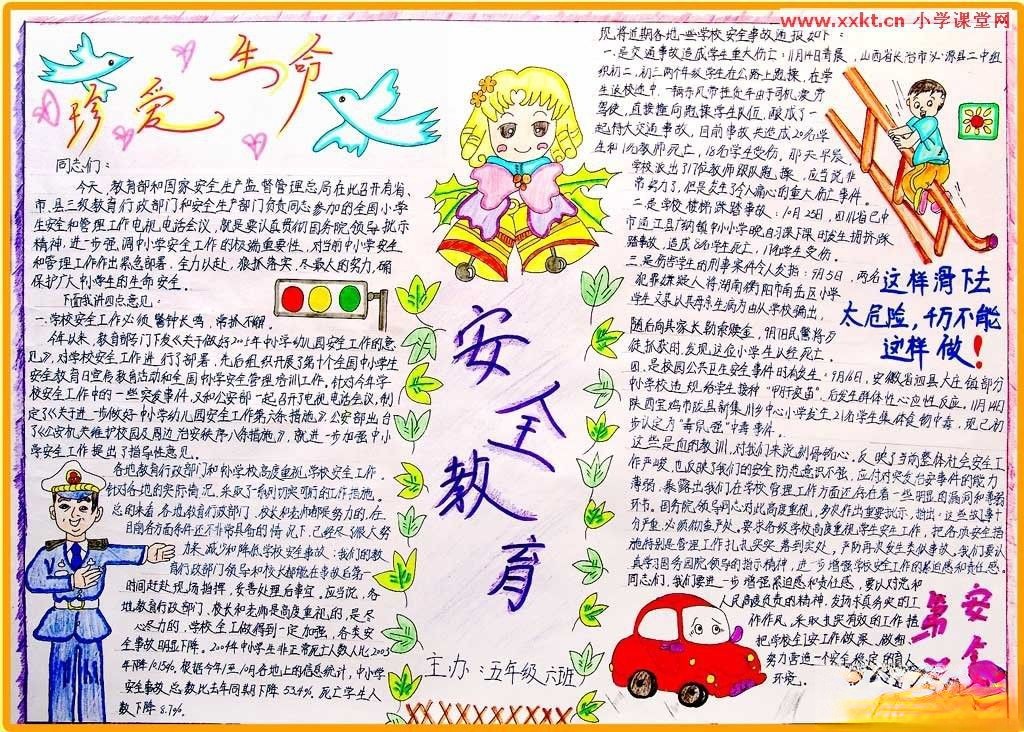 www.xxkt.cn 小学课堂网
珍爱生命
同志们：
今天，教育部和国家安全生产监督管理总局在此召开有省、
市、县三级教育行政部门和安全生产部门负责同志参加的全国小学
生安全和管理工作电视电话会议，就是要认真贯彻国务院领导批示
精神，进一步强调中小学安全工作的极端重要性，对当前中小学安全
和管理工作作出紧急部署，全力以赴，狠抓落实，尽最大的努力，确
保护广大中小学生的生命安全。
下面我讲四点意见：
一、学校安全工作必须警钟长鸣，常抓不懈。
今年以来，教育部专门下发《关于做好2005年中小学幼儿园安全工作的意
见》，对学校安全工作进行了部署，先后组织开展了第十个全国中小学生
安全教育日宣传教育活动和全国中小学安全管理培训工作，针对今年学
校安全工作中的一些突发事件，又和公安部一起召开了电视电话会议，制
定了《关于进一步做好中小学幼儿园安全工作六条措施》。公安部出台
了《公安机关维护校园及周边治安秩序八条措施》，就进一步加强中小
学安全工作提出了指导性意见。
各地教育行政部门和中小学校高度重视学校安全工作，
针对各地的实际情况，采取了一系列切实可行的工作措施。
总的来看，各地教育行政部门、校长和老师都很努力的，在
目前各方面条件还不非常具备的情况下，已经尽了很大努
力来减少和降低学校安全事故；我们的教
育行政部门领导和校长都能在事故后第一
时间赶赴现场指挥，妥善处理后事宜，应当说，各
地教育行政部门、校长和老师是高度重视的，是尽
心尽力的，学校安全工做得到一定加强，各类安
全事故明显下降。2004年中小学生非正常死亡人数比2003
年下降10.15%，根据今年1至10月各地上的信息统计，中小学
安全事故总数比去年同期下降53.4%，死亡学生人
数下降8.7%。
安全教育
主办：五年级六班
现将近期各地一些学校安全事故通报如下：
一、是交通事故造成学生重大伤亡：11月14日清晨，山西省长治市沁源县二中组
织初二、初三两个年级学生在公路上跑操，在学
生返校途中，一辆东风带挂货车由于司机疲劳
驾驶，直接撞向跑操学生队伍，酿成了一
起特大交通事故，目前事故共造成20名学
生和1名教师死亡，18名学生受伤。那天早晨，
学校派出了17位教师跟队跑操，应当说非
常努力了，但是发生了令人痛心的重大伤亡事件。
二、是学校楼梯踩踏事故：10月25日，四川省巴中
市通江县广纳镇中心小学晚自习课下课时发生拥挤踩
踏事故，造成8名学生死亡，17名学生受伤。
三、是伤害学生的刑事案件令人发指：9月5日，两名
犯罪嫌疑人将湖南衡阳市南岳区小学
学生文县从其母亲生病为由从学校骗出，
随后向其家长勒索赎金，9月10日民警将歹
徒抓获时，发现这位小学生从经死亡。
四、是校园公共卫生安全事件时有发生：9月16日，安徽省泗县大庄镇部分
中小学校违规给学生接种“甲肝疫苗”，后发生群体性心应性反应。11月14日
陕西宝鸡市陇县新集川乡中心小学发生21名学生集体食物中毒，现已初
步认定为“毒鼠强”中毒事件。
这些是血的教训，对我们来说刻骨铭心，反映了当前整体社会安全工
作严峻，也反映了我们的安全防范意识不强，应付对突发治安事件的能力
薄弱，暴露出我们在学校管理工作方面还存在着一些明显的漏洞和薄弱
环节。国务院领导同志对此高度重视，多次作出重要批示，指出：这些故事十
分严重，必须彻查严处。要求各级学校高度重视学生安全工作，把各项安全措
施特别是管理工作扎扎实实，落到实处，严防再次发生类似事故，我们要认
真学习国务院领导的指示精神，进一步增强学校安全工作的紧迫感和责任感。
同志们，我们要进一步增强紧迫感和责任感，要以对党和
人民高度负责的精神，发扬求真务实的工
作作风，采取扎实有效的工作措
把学校全安工作做柴、做细，
努力营造一个安全稳定的育人
环境。
这样滑下去
太危险，千万不能
这样做！
安全
第一